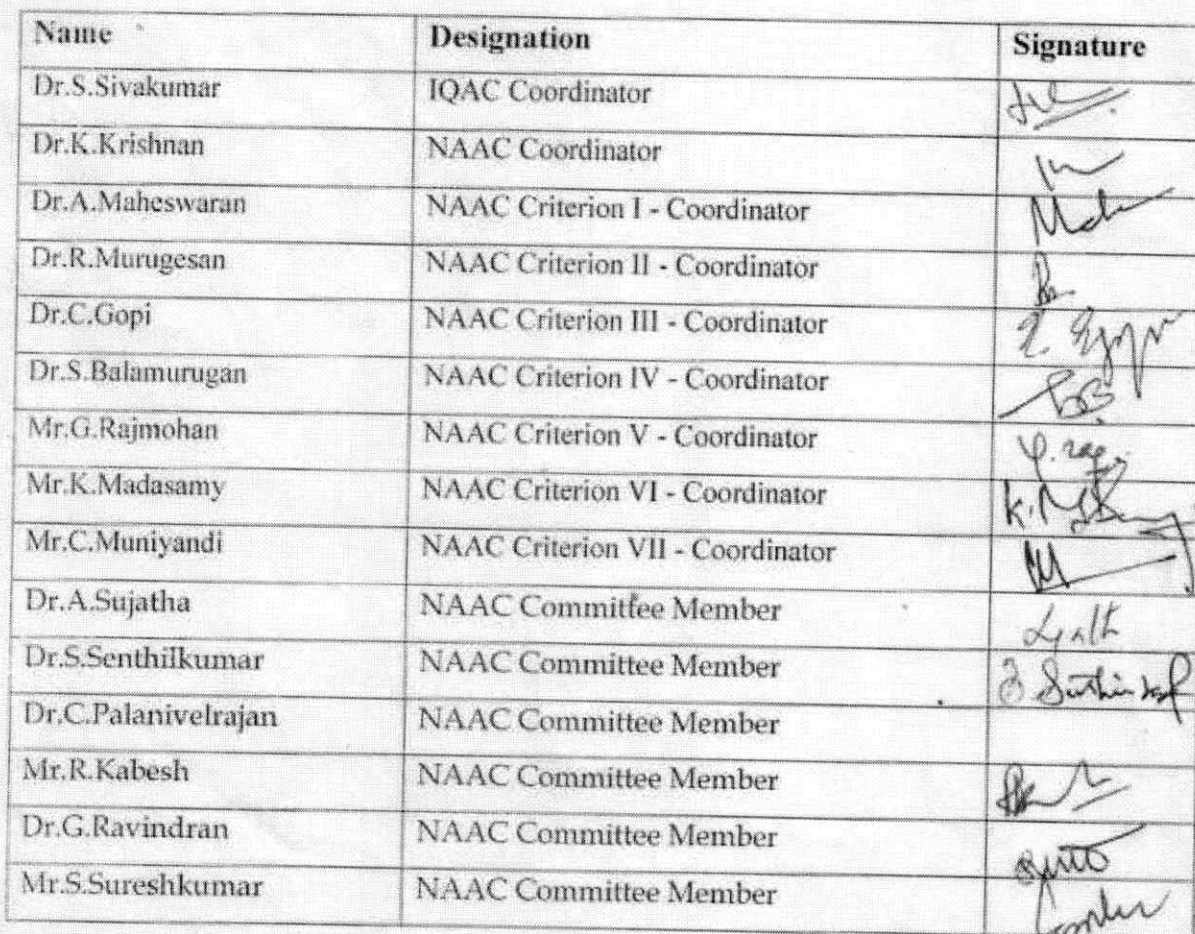 Name Designation Signature
Dr.S.Sivakumar IQAC Coordinator
Dr.K.Krishnan NAAC Coordinator
Dr.A.Maheswaran NAAC Criterion I - Coordinator
Dr.R.Murugesan NAAC Criterion II - Coordinator
Dr.C.Gopi NAAC Criterion III - Coordinator
Dr.S.Balamurugan NAAC Criterion IV - Coordinator
Mr.G.Rajmohan NAAC Criterion V - Coordinator
Mr.K.Madasamy NAAC Criterion VI - Coordinator
Mr.C.Muniyandi NAAC Criterion VII - Coordinator
Dr.A.Sujatha NAAC Committee Member
Dr.S.Senthilkumar NAAC Committee Member
Dr.C.Palanivelrajan NAAC Committee Member
Mr.R.Kabesh NAAC Committee Member
Dr.G.Ravindran NAAC Committee Member
Mr.S.Sureshkumar NAAC Committee Member